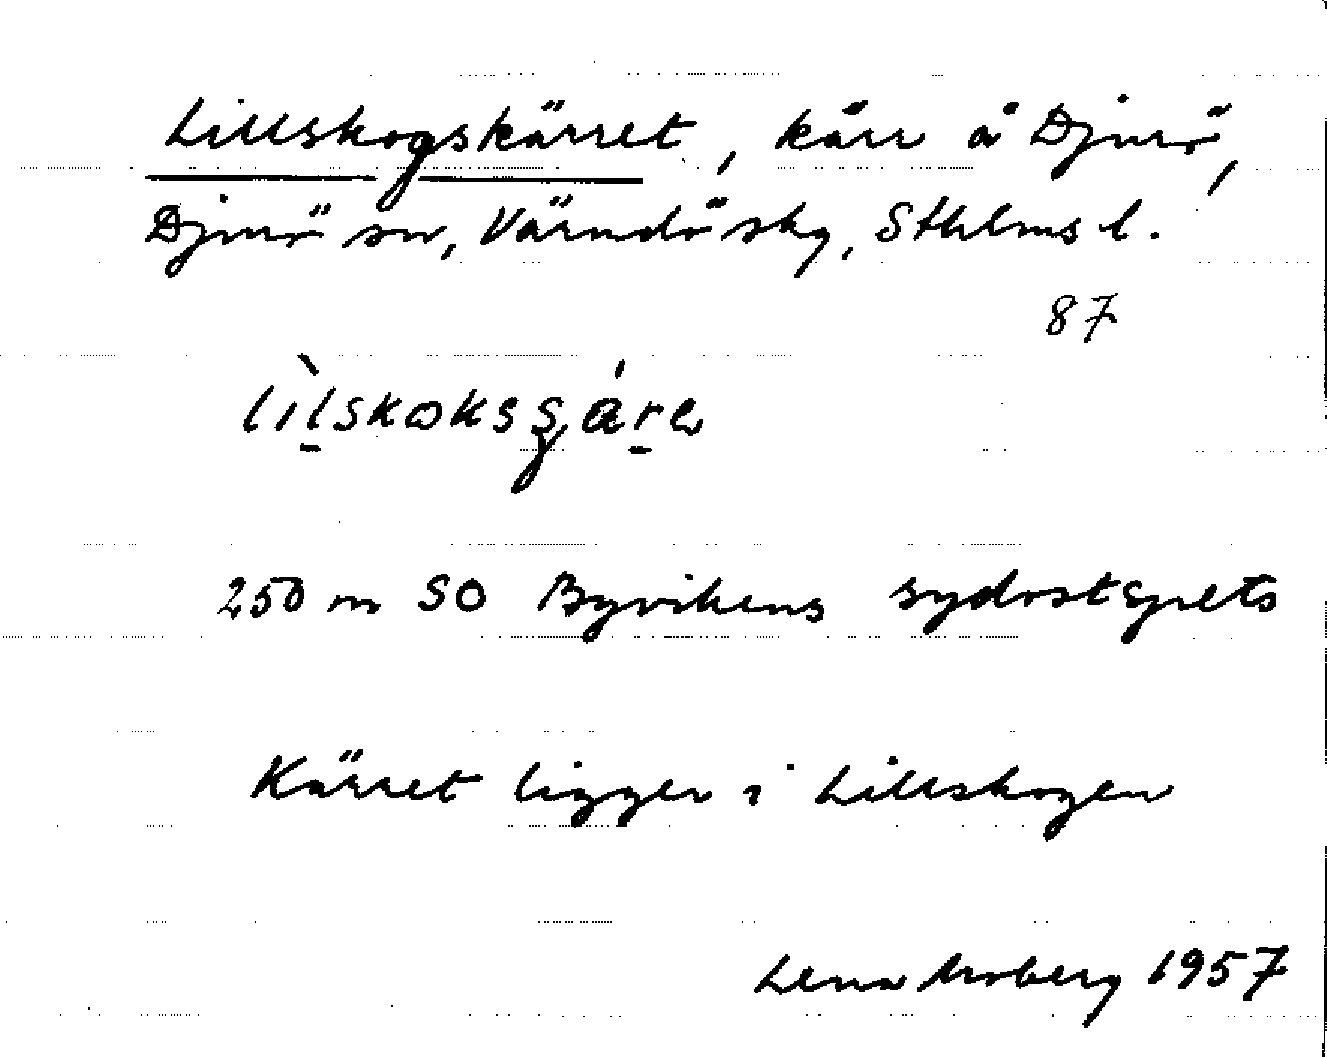 Lillskogskärret, kärr å Djurö,
Djurö sn, Värmdö skg, Sthlms l.
87
250 m SO Byvikens sydostspets
Kärret ligger i Lillskogen
Lena Moberg 1957